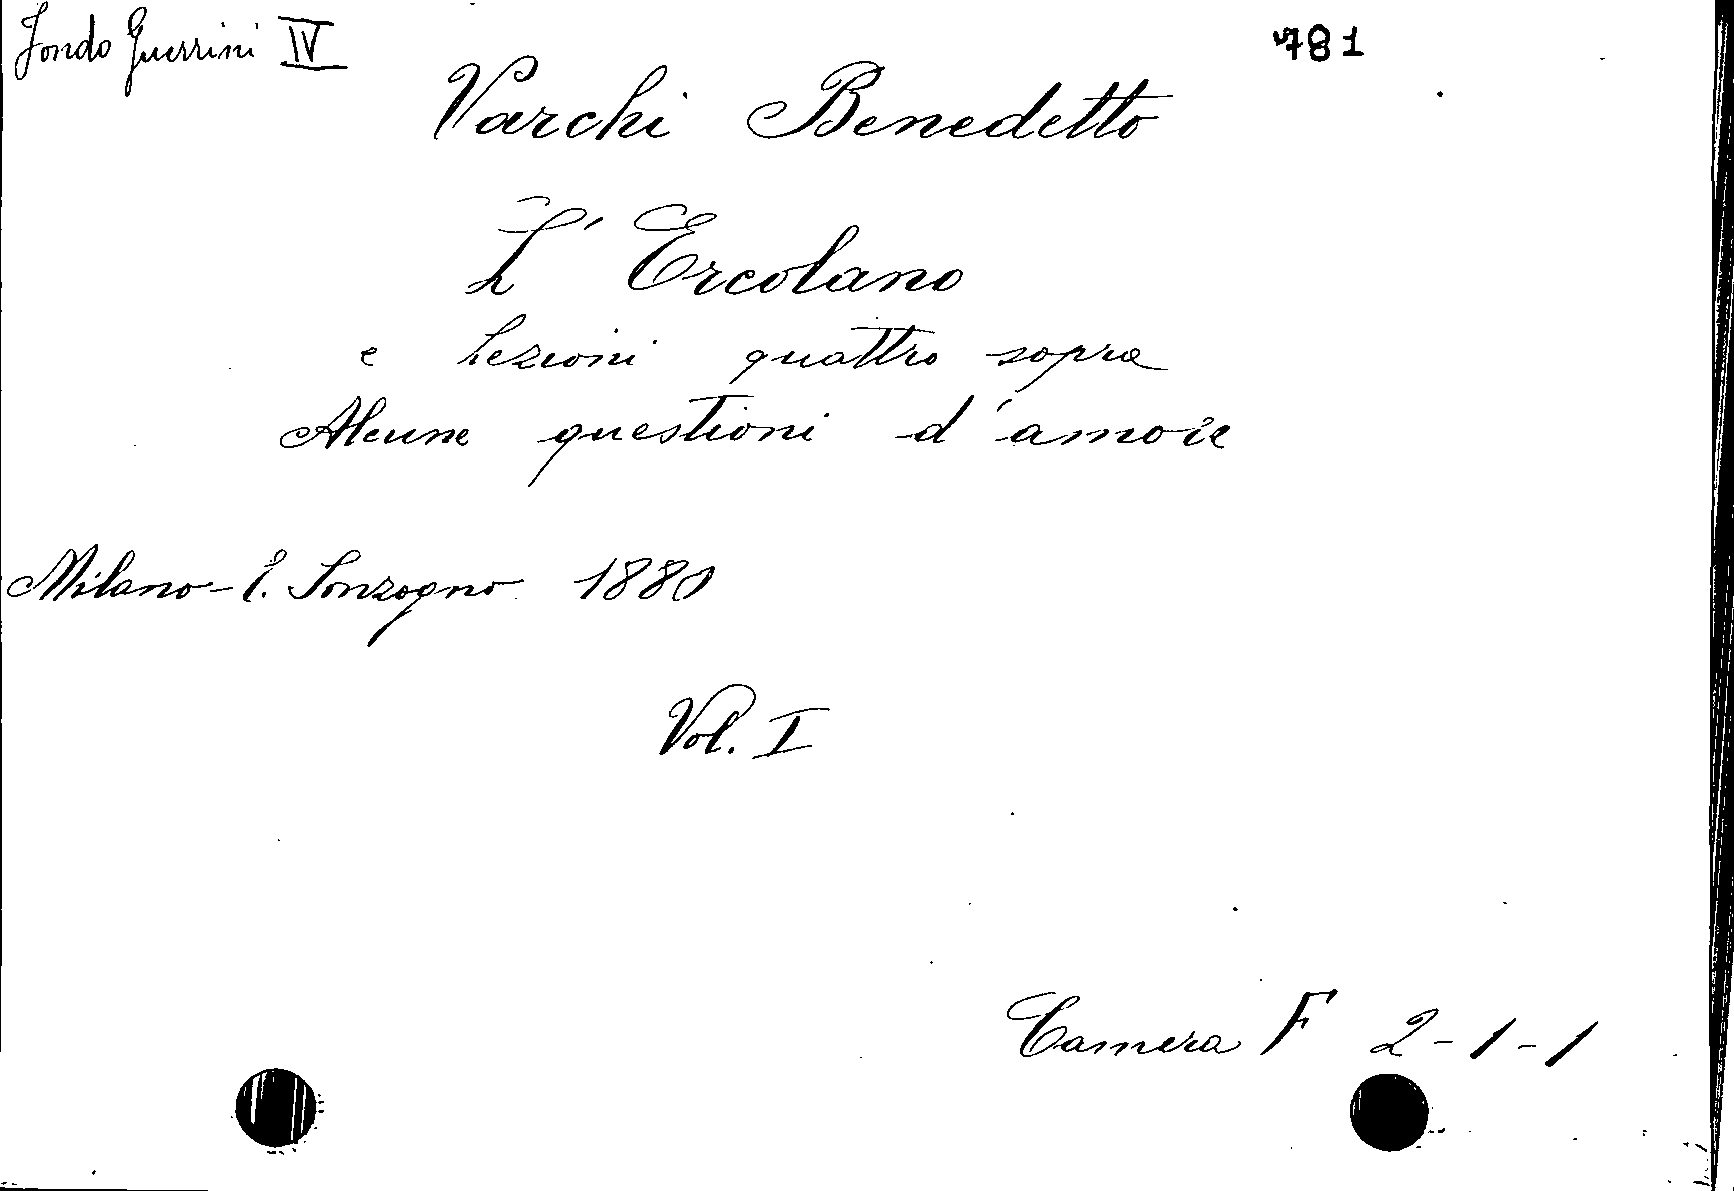 Fondo Guerrini IV 781
Varchi Benedetto
L' Ercolano
e Lezioni quattro sopra
Alcune questioni d'amore
Milano - E. Sonzogno 1880
Vol. I
Camera F 2-1-1